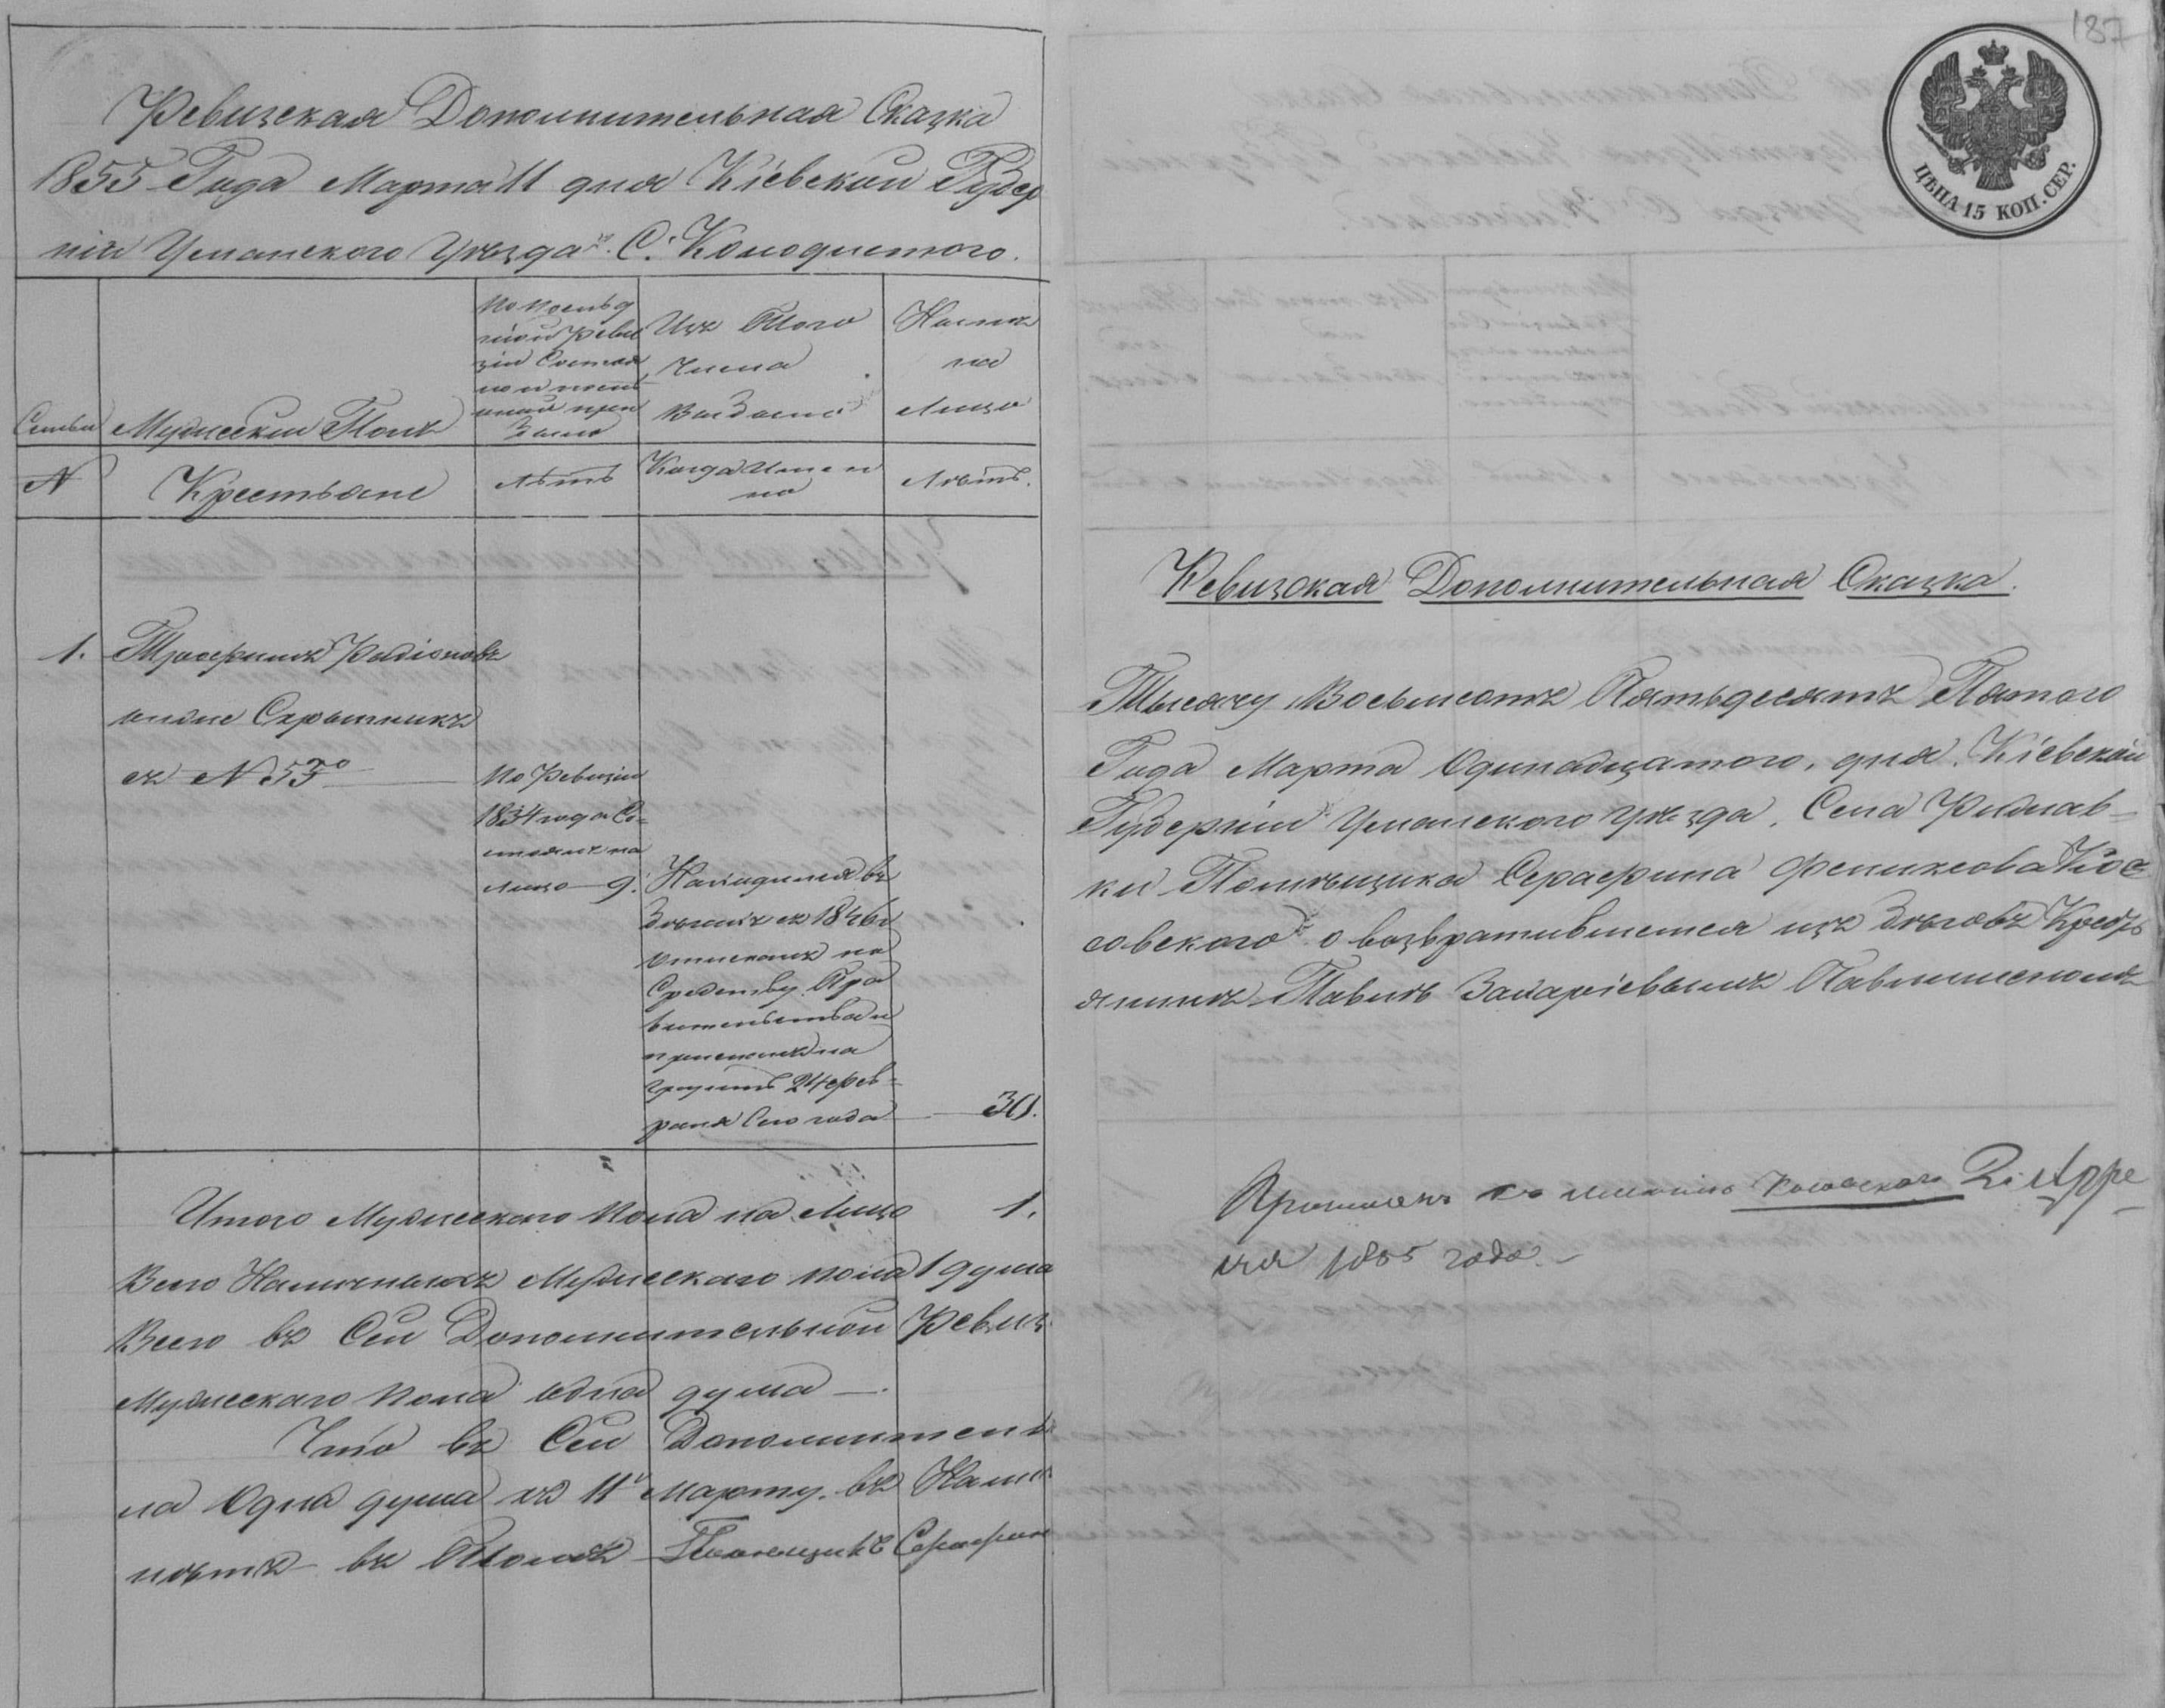 Ревизская Дополнительная Сказка
1855 Года Марта 11 дня Кіевской Губер
ніи Уманского Уѣзда С. Колодистого.
Семьи
Мужеский Полъ
По послѣд
ней Реви
зіи Состоя
ло и послѣ
оной при
было
Изъ Того
Числа
Выбыло
Налицо
на
Лицо
N
Крестьяне
Лѣтъ
Когда Имен
но
Лѣтъ.
1.
Трофимъ Родіоновъ
Скрыпникъ
съ N 53го
По Ревизіи
1834 года Со=
стоялъ на
лицо — 9.
Находился въ
бѣгахъ съ 1846
отысканъ по
Средству Пра
вительства и
присланъ на
грунтъ 24 фев=
раля Сего года
30.
Итого Мужеского пола на Лицо 1.
Всего Наличныхъ Мужескаго пола 1 душа
Всего въ Сей Дополнительной Ревиз
Мужескаго пола одна душа —.
Что въ Сей Дополнитель
на Одна душа къ 11 Марту въ Нали
нѣтъ въ Томъ Помѣщикъ Серафим
187
ЦѢНА 15 КОП. СЕР.
Ревизская Дополнительная Сказка.
Тысячу Восьмсотъ Пятьдесятъ Пятого
Года Марта Одинадцатого, дня Кіевской
Губерніи Уманского Уѣзда, Села Рыжав=
ки Помѣщика Серафима Феликсова Кос
совского о возвратившемся изъ бѣговъ Кресть
янинѣ Павлѣ Захаріевымъ
къ имѣнію Косовского 2 Апре
ля 1855 года.